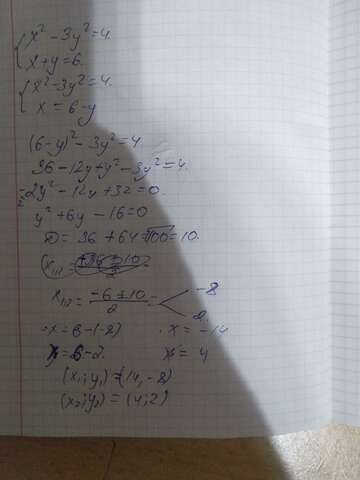 { x² - 3y² = 4.
x + y = 6.
{ x² - 3y² = 4.
x = 6 - y
(6 - y)² - 3y² = 4
36 - 12y + y² - 3y² = 4.
-2y² - 12y + 32 = 0.
y² + 6y - 16 = 0
D = 36 + 64 = √100 = 10.
x₁,₂ = (-6 ± 10)/2 = -8
2.
x = 6 - (-8) x = -14
x = 6 - 2. x = 4
(x₁; y₁) = (14, -8)
(x₂; y₂) = (4; 2)